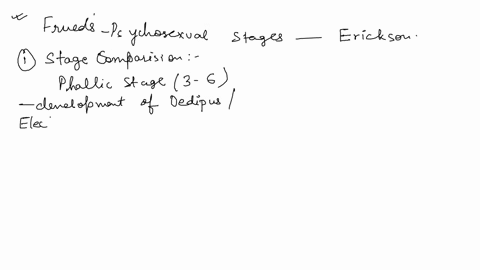 Frueds - Pcychosexual Stages — Erickson.
① Stage Comparision :-
Phallic Stage (3-6)
— development of Oedipus /
Elec